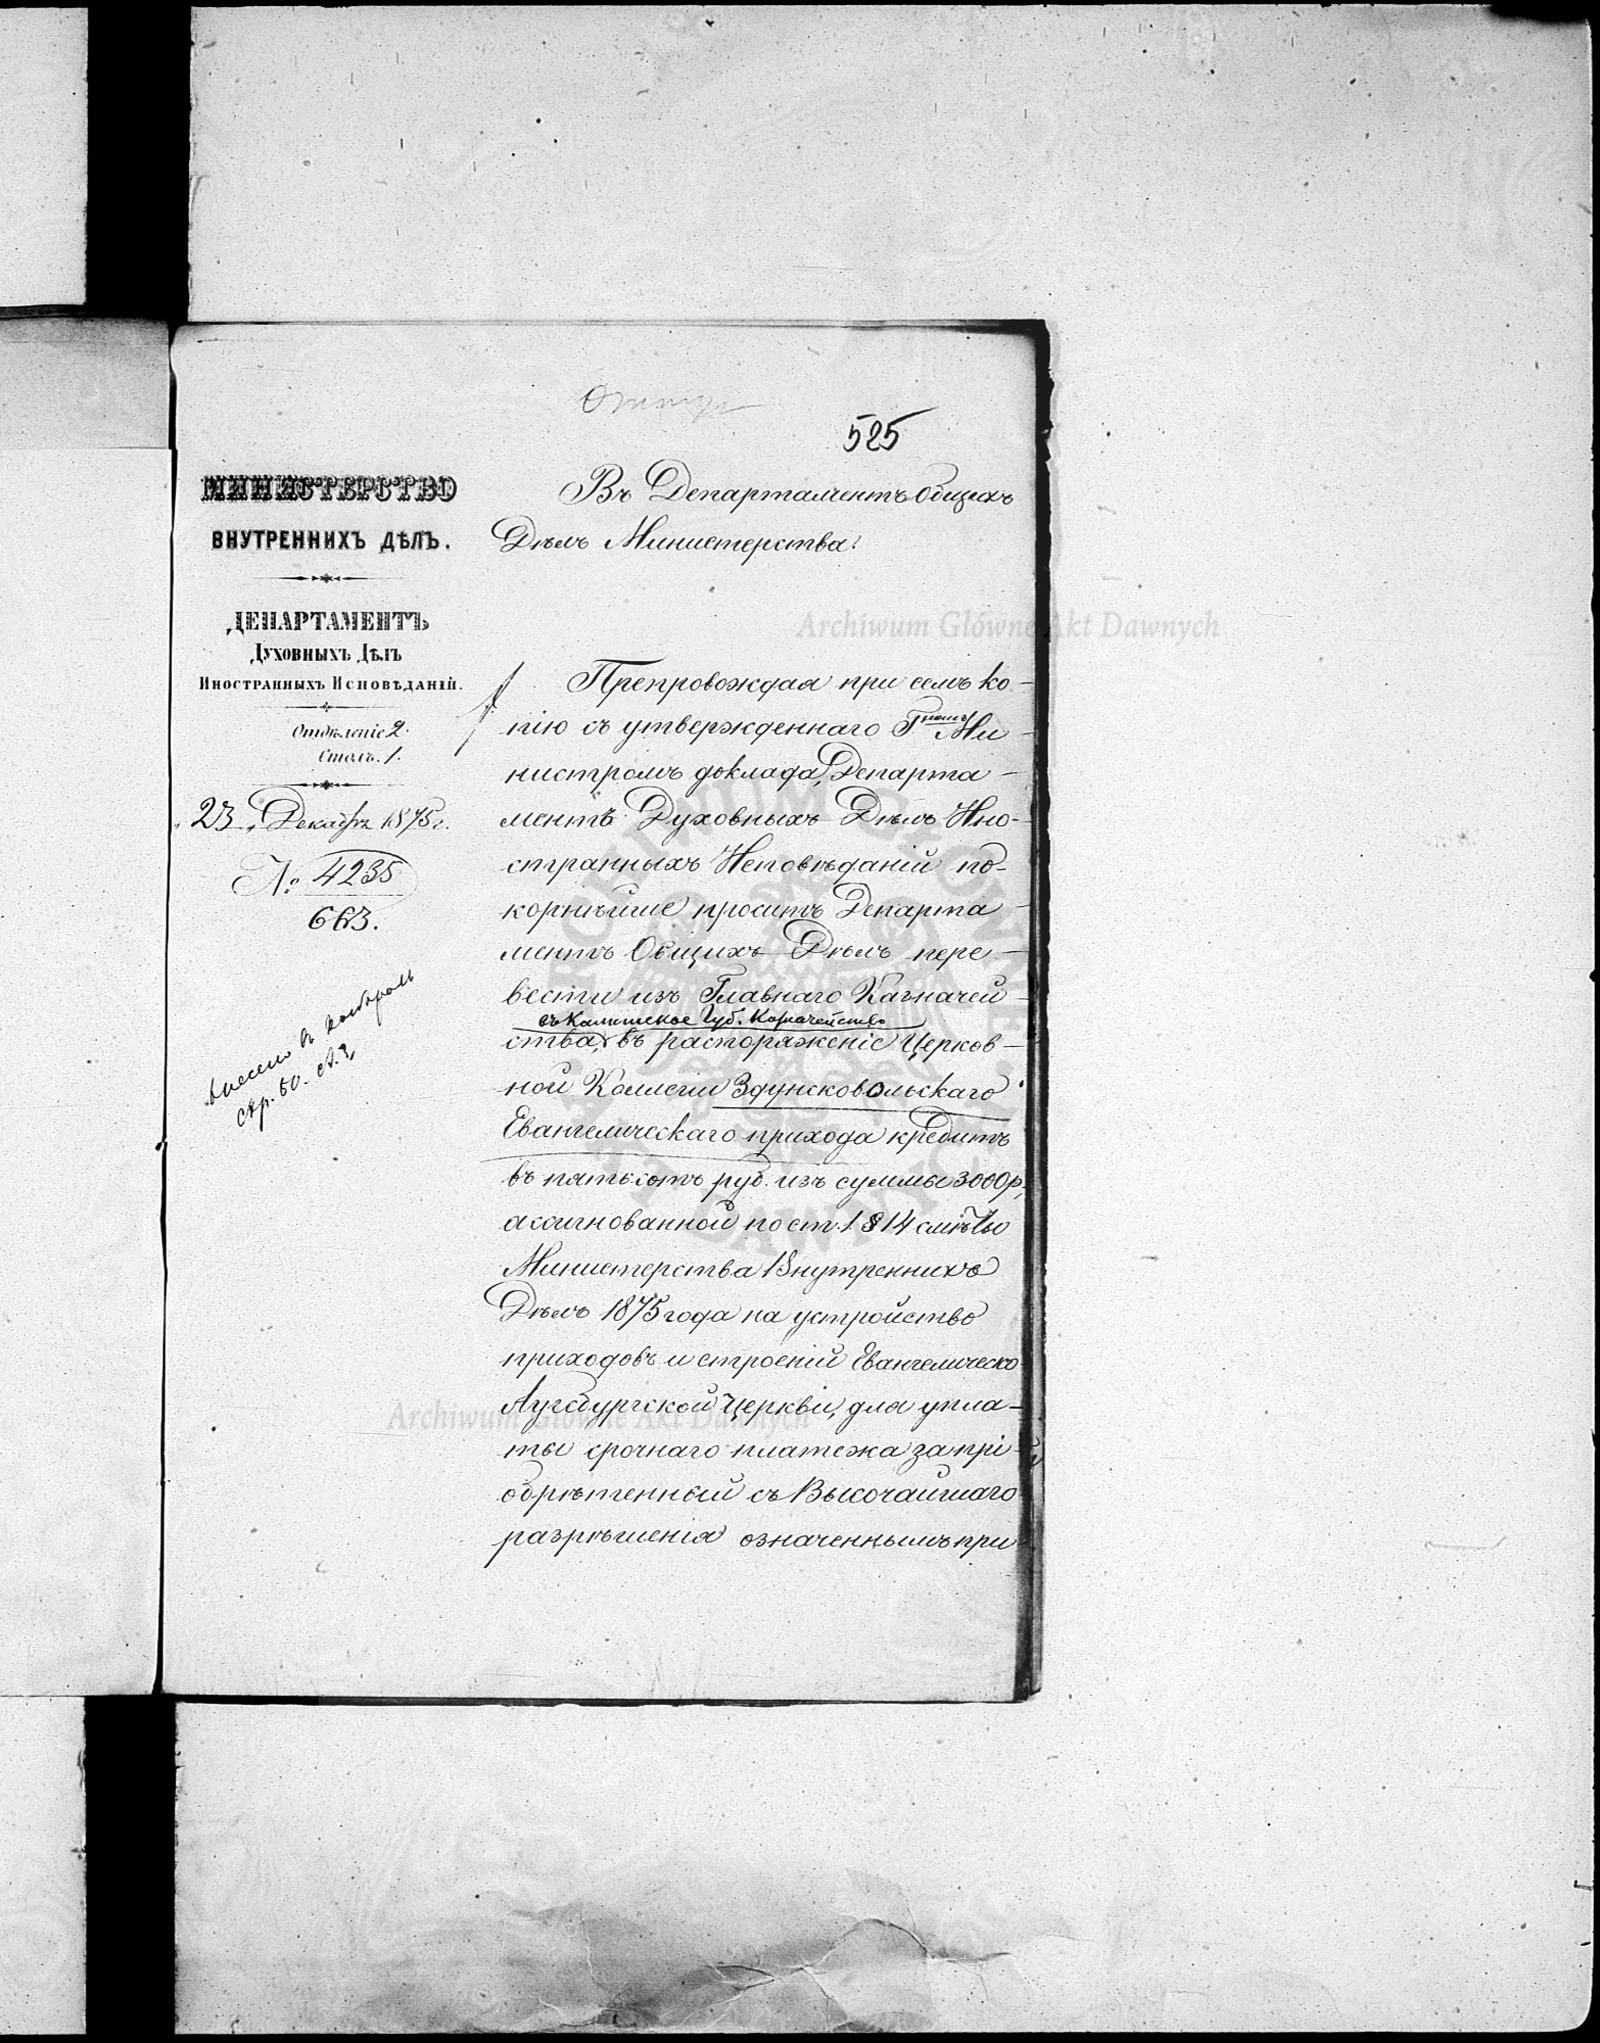 525
МИНИСТЕРСТВО
ВНУТРЕННИХЪ ДѢЛЪ.
ДЕПАРТАМЕНТЪ
ДУХОВНЫХЪ ДѢЛЪ
ИНОСТРАННЫХЪ ИСПОВѢДАНІЙ.
Отдѣленіе 2.
Столъ. 1.
„23„ Декабря 1875 г.
№ 4235
663.
внесено въ контроль
стр. 50. ст.
Въ Департаментъ Общихъ
Дѣлъ Министерства.
Препровождая при семъ ко-
пію съ утвержденнаго Г. Ми-
нистромъ доклада, Департа-
ментъ Духовныхъ Дѣлъ Ино-
странныхъ Исповѣданій по-
корнѣйше проситъ Департа-
ментъ Общихъ Дѣлъ пере-
вести изъ Главнаго Казначей-
въ Калишское Губ. Казначейство
ства, въ распоряженіе Церков-
ной Коллегіи Здунсковольскаго
Евангелическаго прихода кредитъ
въ пятьсотъ руб. изъ суммы 3000 р.,
ассигнованной по ст. 1 § 14 смѣты
Министерства Внутреннихъ
Дѣлъ 1875 года на устройство
приходовъ и строеній Евангелическо
Аугсбургской Церкви, для упла-
ты срочнаго платежа за прі-
обрѣтенный съ Высочайшаго
разрѣшенія означеннымъ при-
Archiwum Główne Akt Dawnych
Archiwum Główne Akt Dawnych
ARCHIWUM GŁÓWNE AKT DAWNYCH